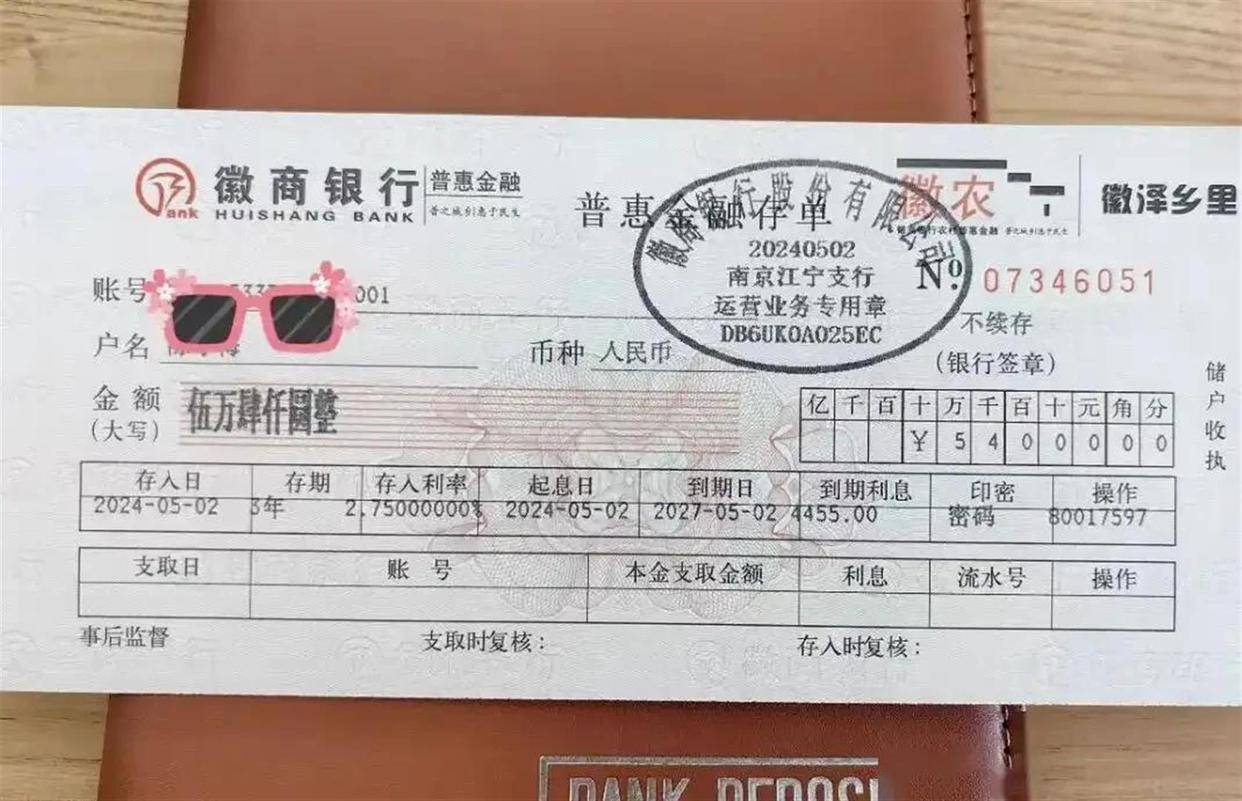 徽商银行 普惠金融
HUISHANG BANK 普之城乡惠于民生
普惠金融存单
徽农
徽商银行农村普惠金融 普之城乡惠于民生
徽泽乡里
徽商银行股份有限公司
20240502
南京江宁支行
运营业务专用章
DB6UK0A025EC
№ 07346051
账号 001
不续存
户名
币种 人民币
(银行签章)
金额 伍万肆仟圆整
(大写)
亿 千 百 十 万 千 百 十 元 角 分
¥ 5 4 0 0 0 0 0
储户收执
存入日 存期 存入利率 起息日 到期日 到期利息 印密 操作
2024-05-02 3年 2.75000000% 2024-05-02 2027-05-02 4455.00 密码 80017597
支取日 账 号 本金支取金额 利息 流水号 操作
事后监督 支取时复核: 存入时复核: